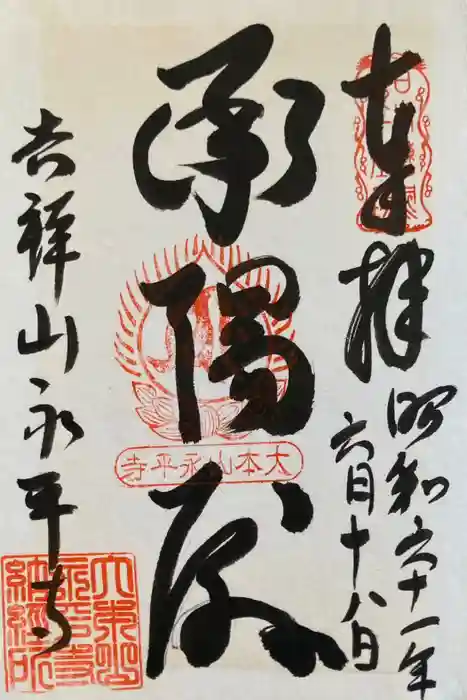 奉拝
昭和六十一年
六月十八日
承陽殿
吉祥山永平寺
大本山永平寺